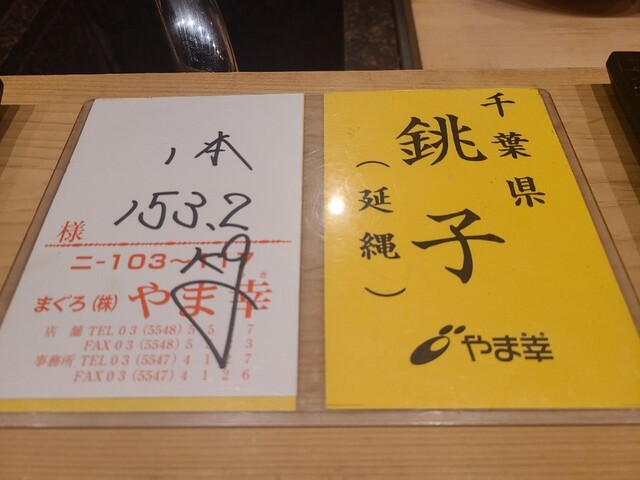 1本
153.2
kg
様
ニ-103〜117
まぐろ(株)やま幸
店舗 TEL 03 (5548) 5 5 7
FAX 03 (5548) 5 3
事務所 TEL 03 (5547) 4 1 2 7
FAX 03 (5547) 4 1 2 6
千葉県
銚子
(延縄)
やま幸